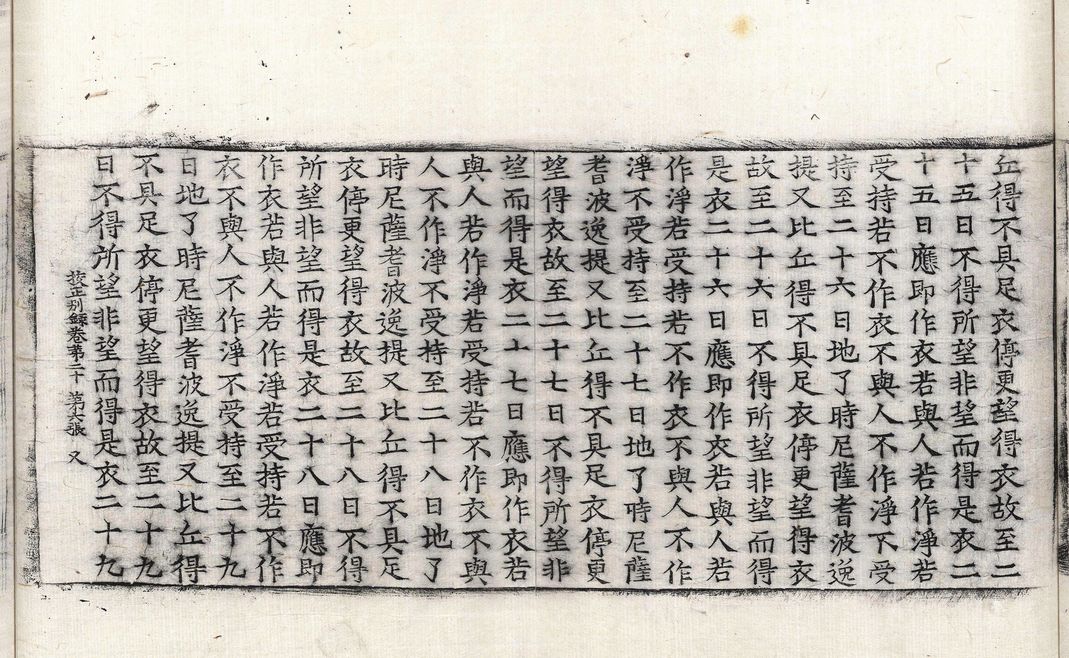 丘得不具足衣停更望得衣故至二
十五日不得所望非望而得是衣二
十五日應即作衣若與人若作淨若
受持若不作衣不與人不作淨不受
持至二十六日地了時尼薩耆波逸
提又比丘得不具足衣停更望得衣
故至二十六日不得所望非望而得
是衣二十六日應即作衣若與人若
作淨若受持若不作衣不與人不作
淨不受持至二十七日地了時尼薩
耆波逸提又比丘得不具足衣停更
望得衣故至二十七日不得所望非
望而得是衣二十七日應即作衣若
與人若作淨若受持若不作衣不與
人不作淨不受持至二十八日地了
時尼薩耆波逸提又比丘得不具足
衣停更望得衣故至二十八日不得
所望非望而得是衣二十八日應即
作衣若與人若作淨若受持若不作
衣不與人不作淨不受持至二十九
日地了時尼薩耆波逸提又比丘得
不具足衣停更望得衣故至二十九
日不得所望非望而得是衣二十九
挍正別錄卷第二十 第 張 又